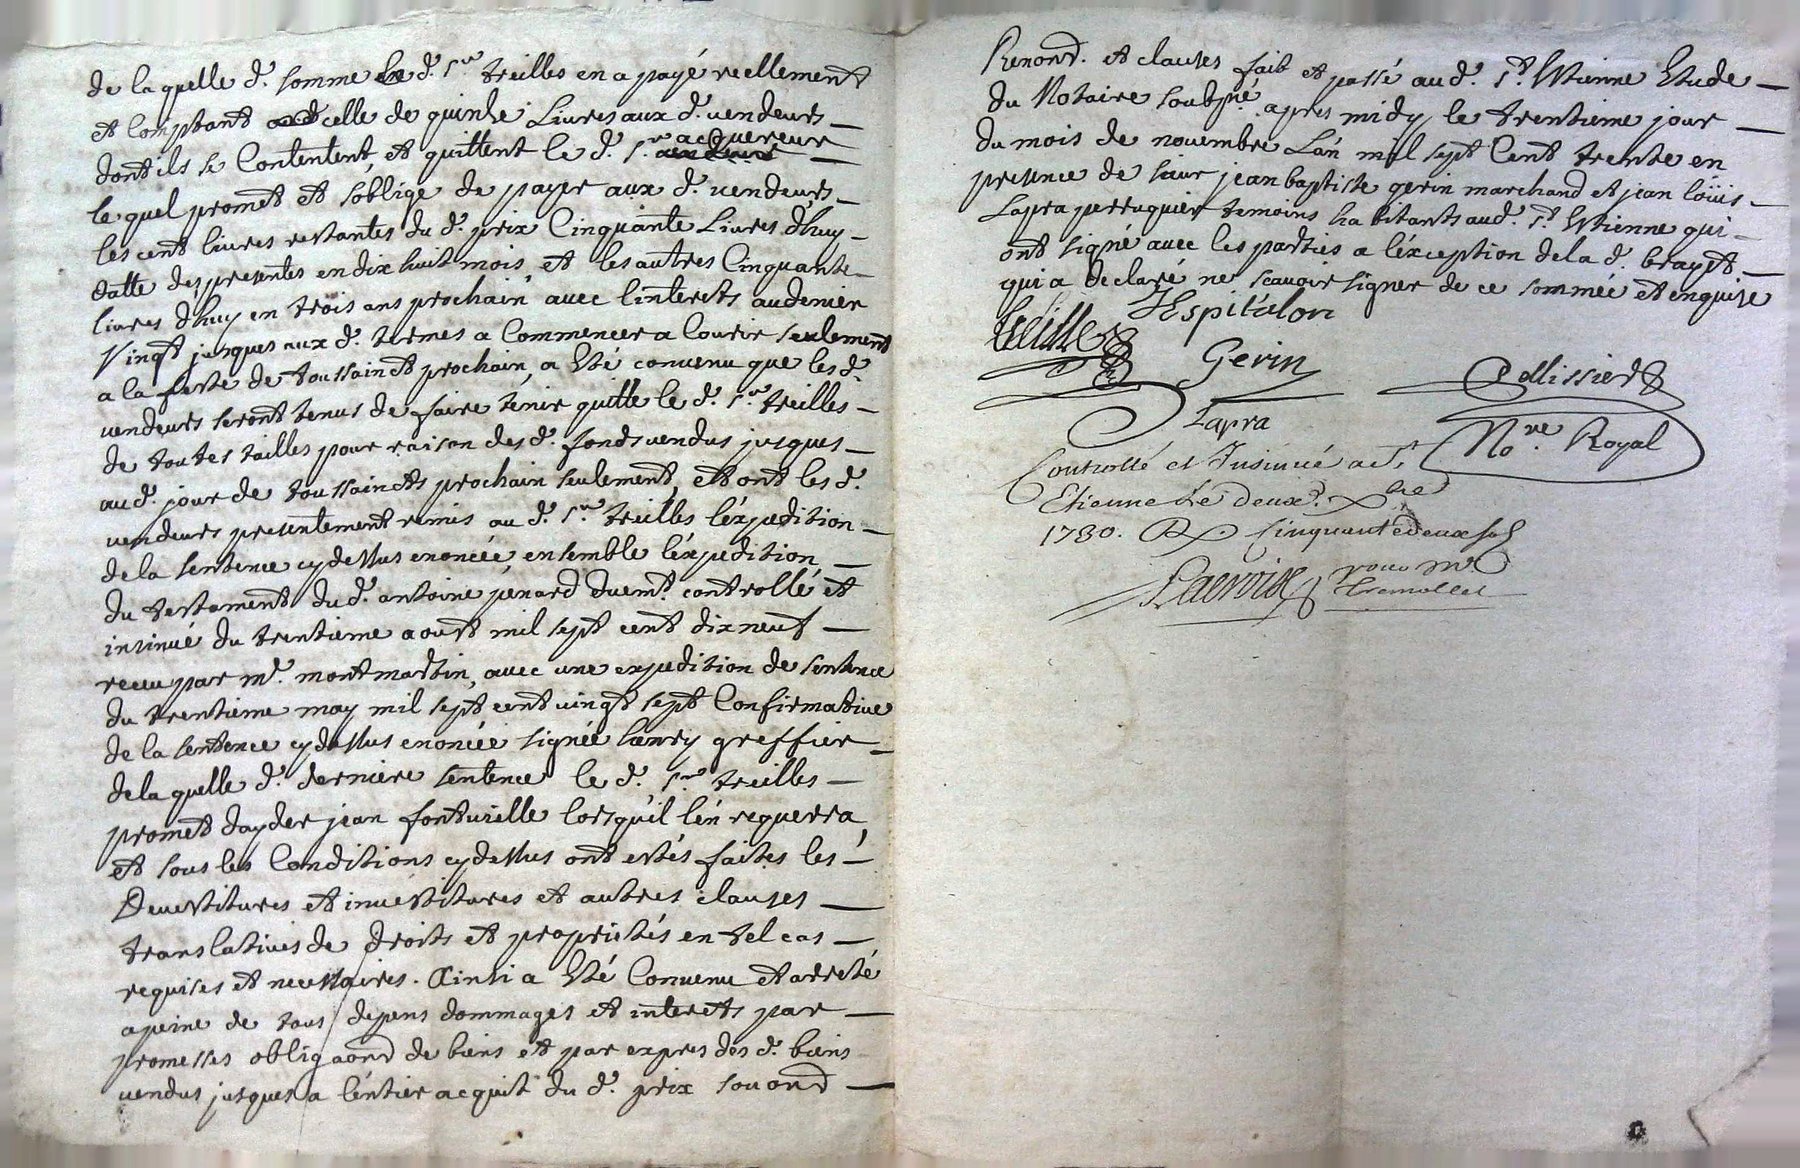 de laquelle d. somme le d. Sr. treilles en a payé reellement
et Comptant celle de quinze Livres aux d. vendeurs
dont ils se Contentent, et quittent le d. Sr. acquereur
lequel promet et soblige de payer aux d. vendeurs
les cent livres restantes du d. prix Cinquante Livres dhuy
datte des presentes en dix huit mois, et les autres Cinquante
livres dhuy en trois ans prochain avec linterets au denier
Vingt jusques aux d. termes a Commencer a Courir seulement
a la feste de toussainct prochain, a Eté convenu que les d.
vendeurs seront tenus de faire tenir quitte le d. Sr. treilles
de toutes tailles pour raison des d. fonds vendus jusques
au d. jour de toussaincts prochain seulement, et ont les d.
vendeurs presentement remis au d. Sr. treilles l'éxpedition
de la sentence cy dessus enoncée, ensemble l'éxpedition
du testament du d. antoine penard duemt. controllé et
insinué du trentieme aoust mil sept cent dix neuf
receu par me. montmartin, avec une expedition de sentence
du trentieme may mil sept cent vingt sept Confirmative
de la sentence cy dessus enoncée signée greffier
de la quelle d. derniere sentence le d. Sr. treilles
promet dayder jean fontvieille lorsqu'il l'én requerra,
et sous les Conditions cy dessus ont estés faites les
Devestitures et investitures et autres clauses
translatives de droits et proprietés en tel cas
requises et necessaires. Ainsi a Eté Convenu et arreté
a peine de tous depens dommages et interets par
promesses obligaond de biens et par expres des d. biens
vendus jusques a l'éntier acquit du d. prix souond
Renond. et clauses fait et passé au d. St. Etienne Etude
du Notaire soubzné apres midy le trentieme jour
du mois de novembre Lan mil sept Cent trente en
presence de sieur jean baptiste gerin marchand et jean loüis
Lapra perruquier temoins habitants aud. St. Etienne qui
ont signé avec les parties a l'éxception de la d. brayet
qui a declaré ne scavoir signer de ce sommée et enquise
treilles
Hespitalon
Gerin
Lapra
No.re Royal
Controllé et Insinué a St.
Etienne le deux. Xbre
1730. Rx Cinquante deux sols
pour Mr.